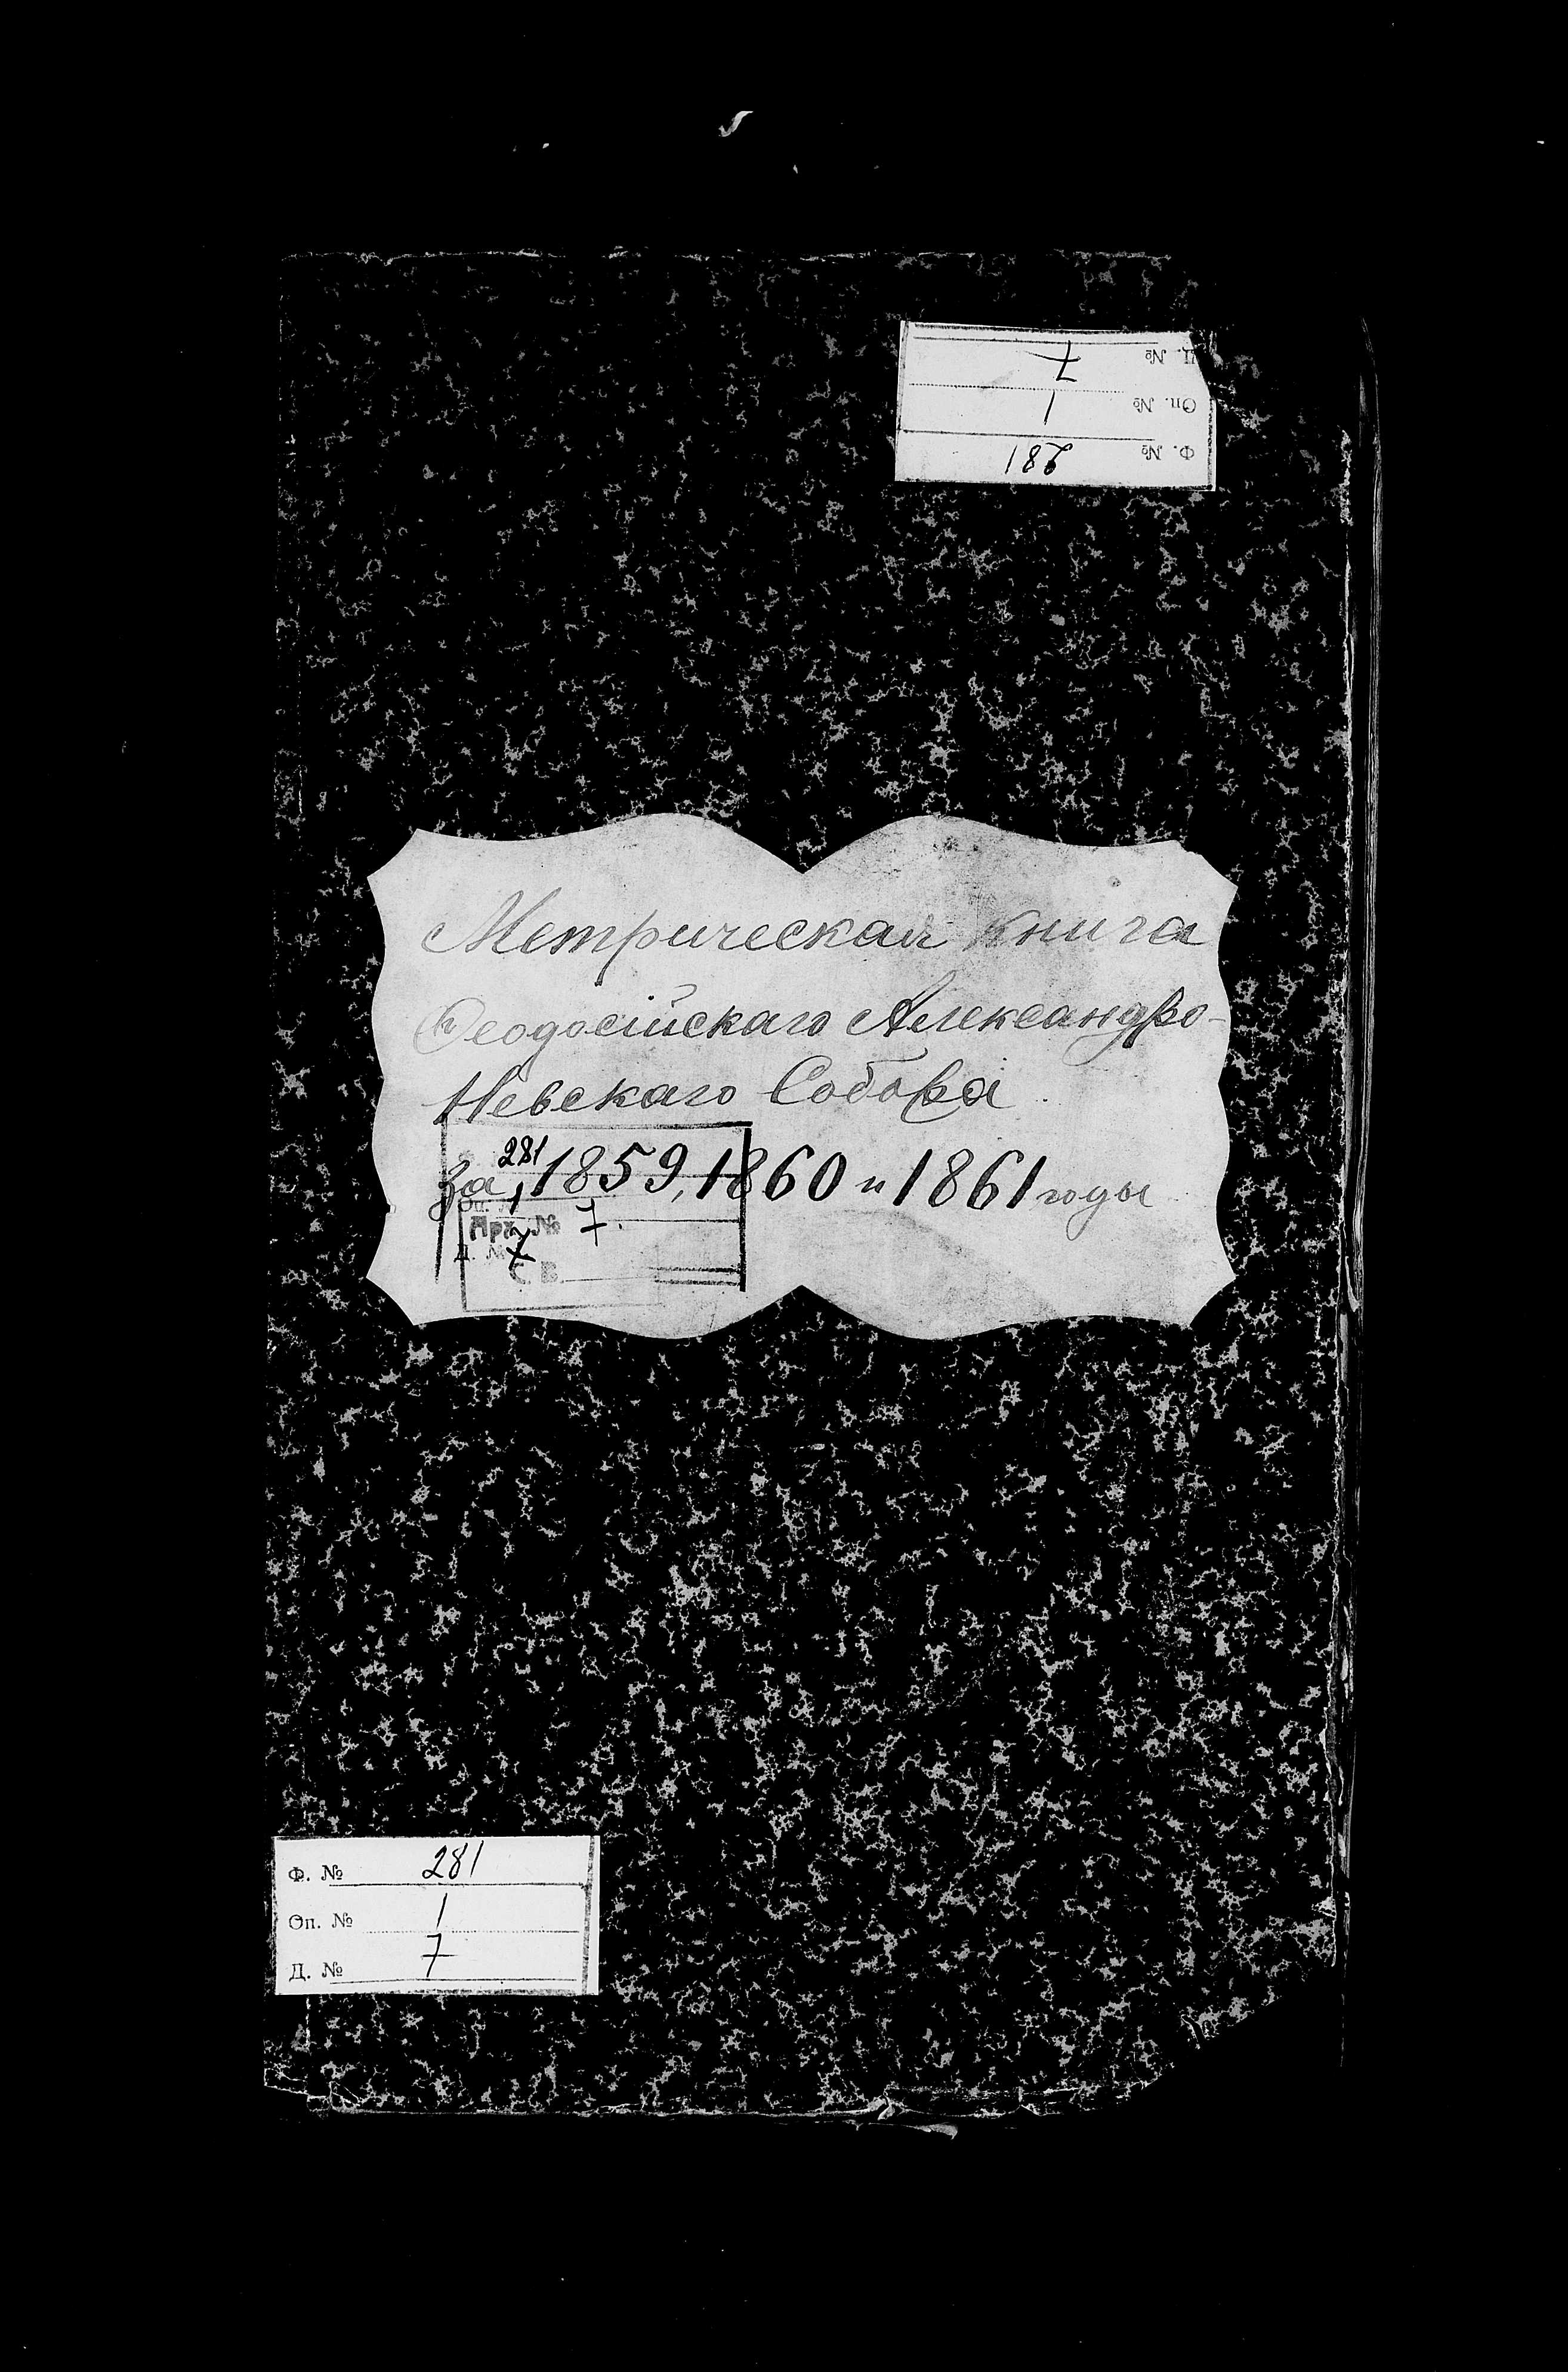 Д. № 7
Оп. № 1
Ф. № 281
Метрическая книга
Ѳеодосійскаго Александро-
Невскаго Собора
за 1859, 1860 и 1861 годы
281
Оп. № 1
Арх. № 7
Д. № 7
СВ.
Ф. № 281
Оп. № 1
Д. № 7